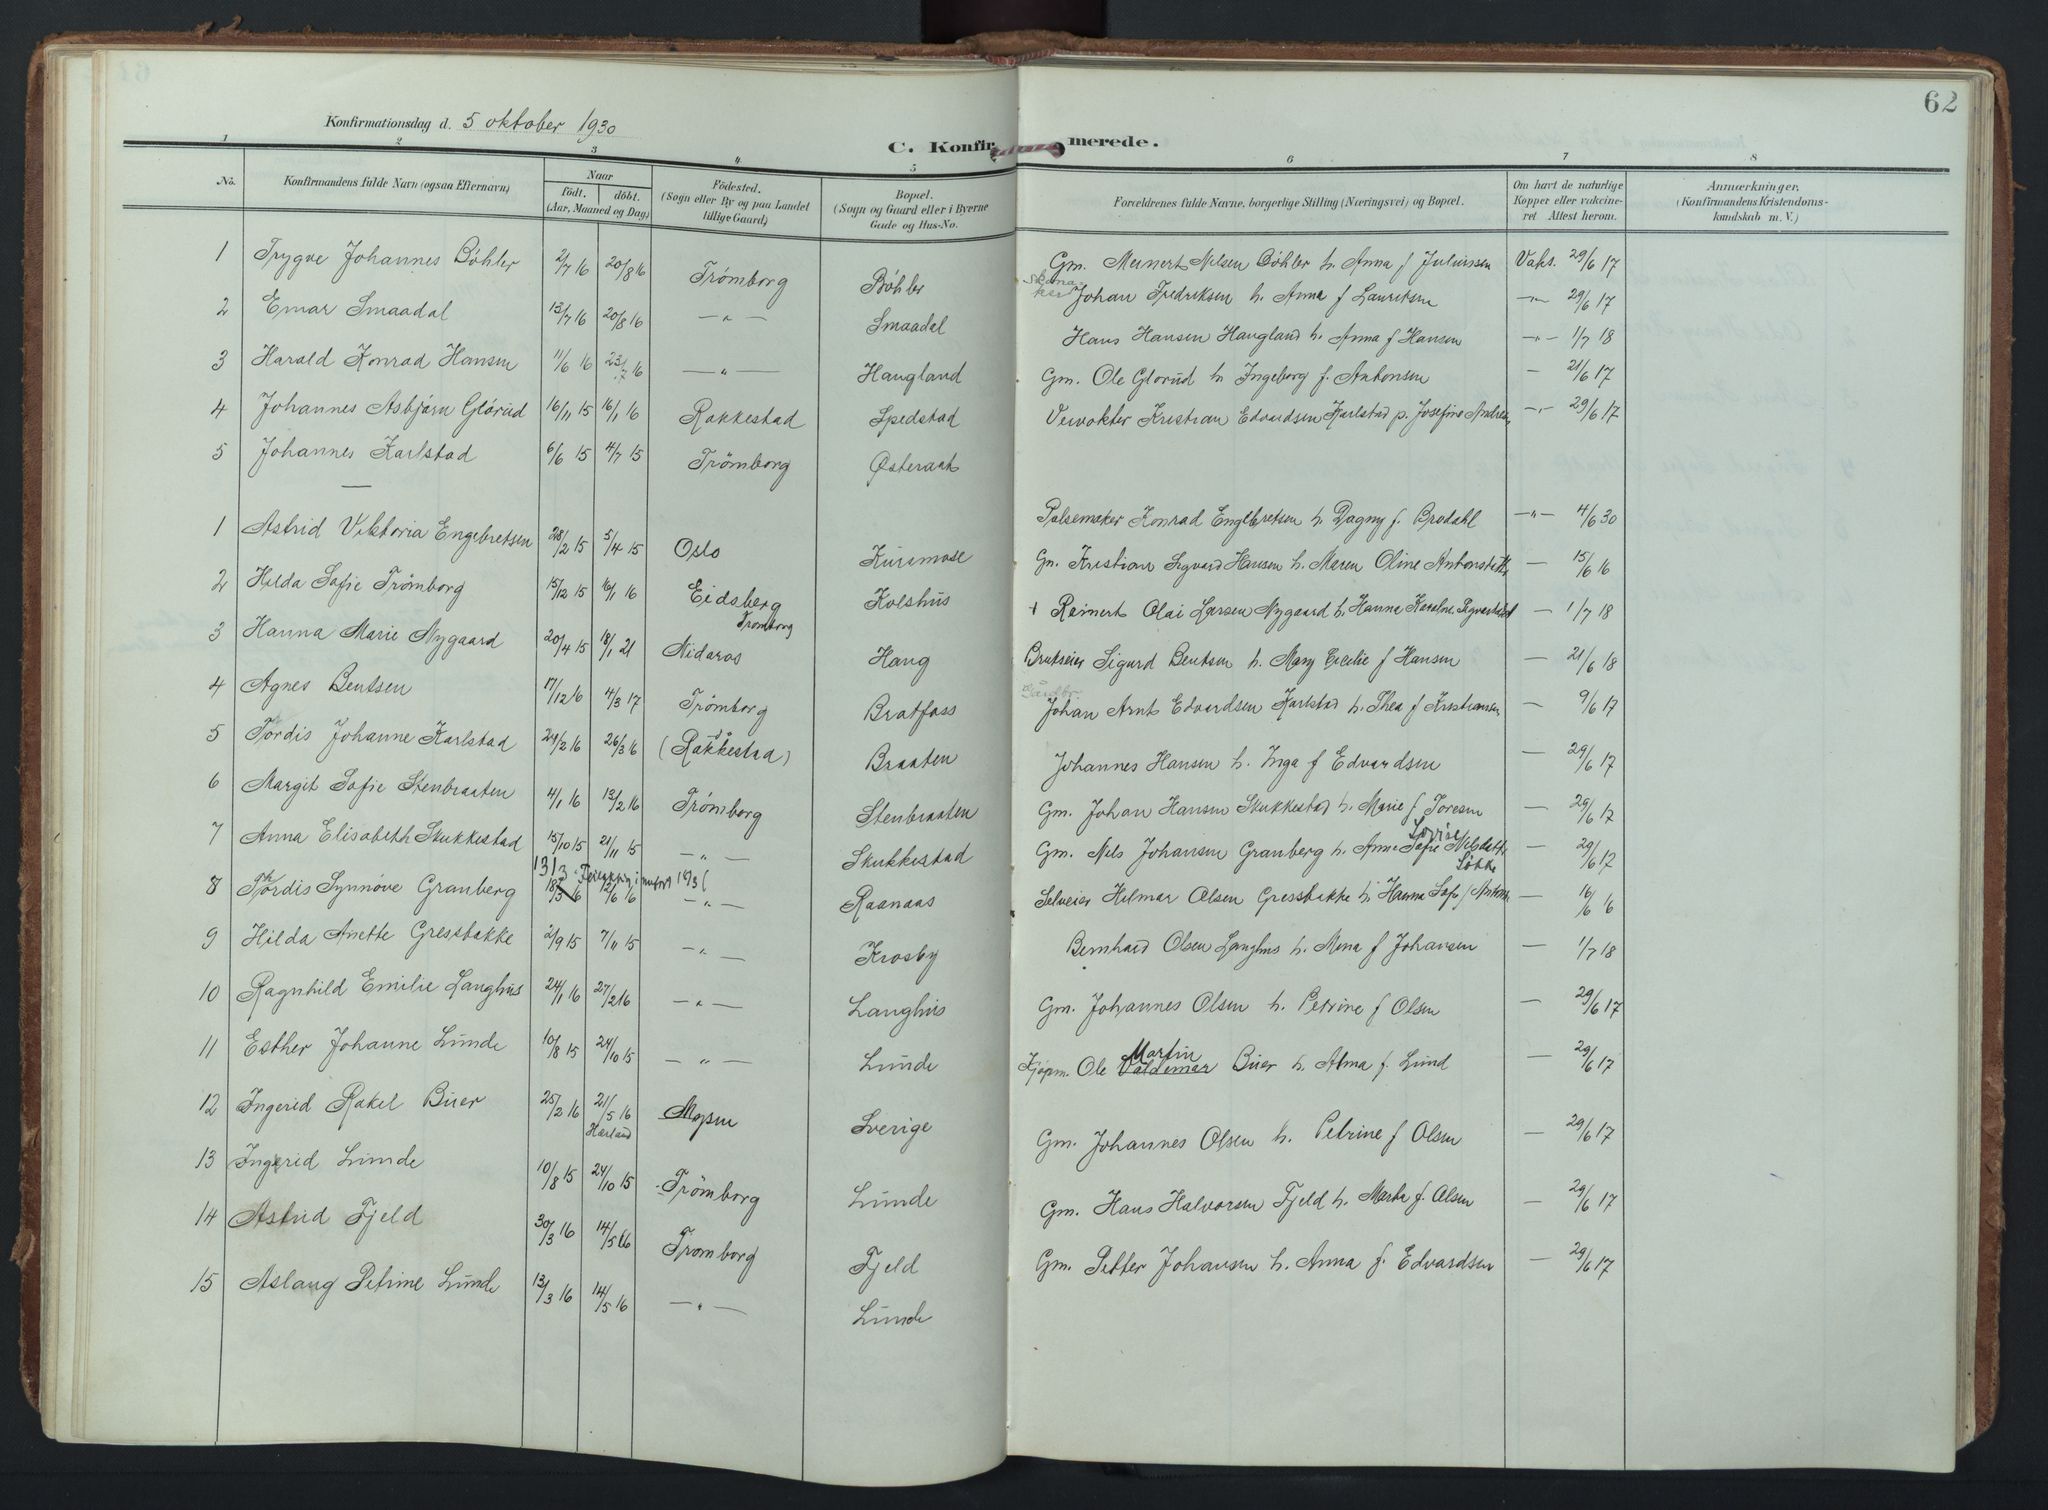 62
Konfirmationsdag d. 5 oktober 1930
C. Konfirmerede.
1 2 3 4 5 6 7 8
No. Konfirmandens fulde Navn (ogsaa Efternavn) Naar födt. döbt. (Aar, Maaned og Dag) Födested. (Sogn eller By og paa Landet tillige Gaard) Bopæl. (Sogn og Gaard eller i Byerne Gade og Hus-No. Forældrenes fulde Navne, borgerlige Stilling (Næringsvei) og Bopæl. Om havt de naturlige Kopper eller vakcineret Attest herom. Anmærkninger. (Konfirmandens Kristendomskundskab m. V.)
1 Trygve Johannes Böhler 2/7 16 20/8 16 Trömborg Böhler Gm. Meinert Nilsen Böhler h. Anna f Juliussen Vaks. 29/6 17
2 Einar Smaadal 13/7 16 20/8 16 —〃— Smaadal Skomaker Johan Fredriksen h. Anna f Lauritsen —〃— 29/6 17
3 Harald Konrad Hansen 11/6 16 23/7 16 —〃— Haugland Hans Hansen Haugland h. Anna f Hansen —〃— 1/7 18
4 Johannes Asbjörn Glörud 16/11 15 16/1 16 Rakkestad Spedstad Gm. Ole Glorud h Ingeborg f. Antonsen — 21/6 17
5 Johannes Karlstad 6/6 15 4/7 15 Trömborg Østeraat Veivokter Kristian Edvardsen Karlstad p. Josefine Andres —〃— 29/6 17
—
1 Astrid Viktoria Engebretsen 28/2 15 5/4 15 Oslo Kursmose Pølsemaker Konrad Engebretsen h Dagny f. Brodahl —〃— 4/6 30
2 Hilda Sofie Trömborg 15/12 15 16/1 16 Eidsberg Trömborg Kolshus Gm. Kristian Sigvard Hansen h. Maren Oline Antonsdatter — 15/6 16
3 Hanna Marie Nygaard 20/4 15 18/1 21 Nidaros Haug + Reinert Olai Larsen Nygaard h. Hanna — 1/7 18
4 Agnes Bentsen 17/12 16 4/3 17 Trömborg Bratfoss Brutseier Sigurd Bentsen h. Mary Cecilie f Hansen — 21/6 18
5 Tordis Johanne Karlstad 29/2 16 26/3 16 (Rakkestad) Braaten Gaardbr. Johan Arnt Edvardsen Karlstad h. Thea f Kristiansen — 9/6 17
6 Margit Sofie Stenbraaten 4/1 16 13/2 16 Trömborg Stenbraaten Johannes Hansen h. Inga f Edvardsen — 29/6 17
7 Anna Elisabeth Skukkestad 15/10 15 21/11 15 —〃— Skukkestad Gm. Johan Hansen Skukkestad h. Marie f Toresen — 29/6 17
8 Thordis Synnöve Granberg 13/3 18/3 16 12/6 16 —〃— Raanaas Gm. Nils Johansen Granberg h. Anne Sofie Lovise Nilsdatter Løkke — 29/6 17
9 Hilda Anette Gressbakke 2/9 15 7/11 15 —〃— Krosby Selveier Hilmar Olsen Gressbakke h Hanna Sofie f Antons — 16/6 16
10 Ragnhild Emilie Langhus 24/1 16 27/2 16 —〃— Langhus Bernhard Olsen Langhus h. Mina f Johansen — 1/7 18
11 Esther Johanne Lunde 10/8 15 24/10 15 —〃— Lunde Gm. Johannes Olsen h. Petrine f Olsen — 29/6 17
12 Ingerid Rakel Buer 25/2 16 21/5 16 Härland Mysen Sverige Kjøpm. Ole Valdemar Martin Buer h. Alma f. Lund — 29/6 17
13 Ingerid Lunde 10/8 15 24/10 15 Trömborg Lunde Gm. Johannes Olsen h. Petrine f Olsen — 29/6 17
14 Astrid Fjeld 30/3 16 14/5 16 Trömborg Fjeld Gm. Hans Halvorsen Fjeld h. Marta f. Olsen — 29/6 17
15 Aslaug Petrine Lunde 13/3 16 14/5 16 —〃— Lunde Gm. Petter Johansen h. Anna f. Edvardsen — 29/6 17